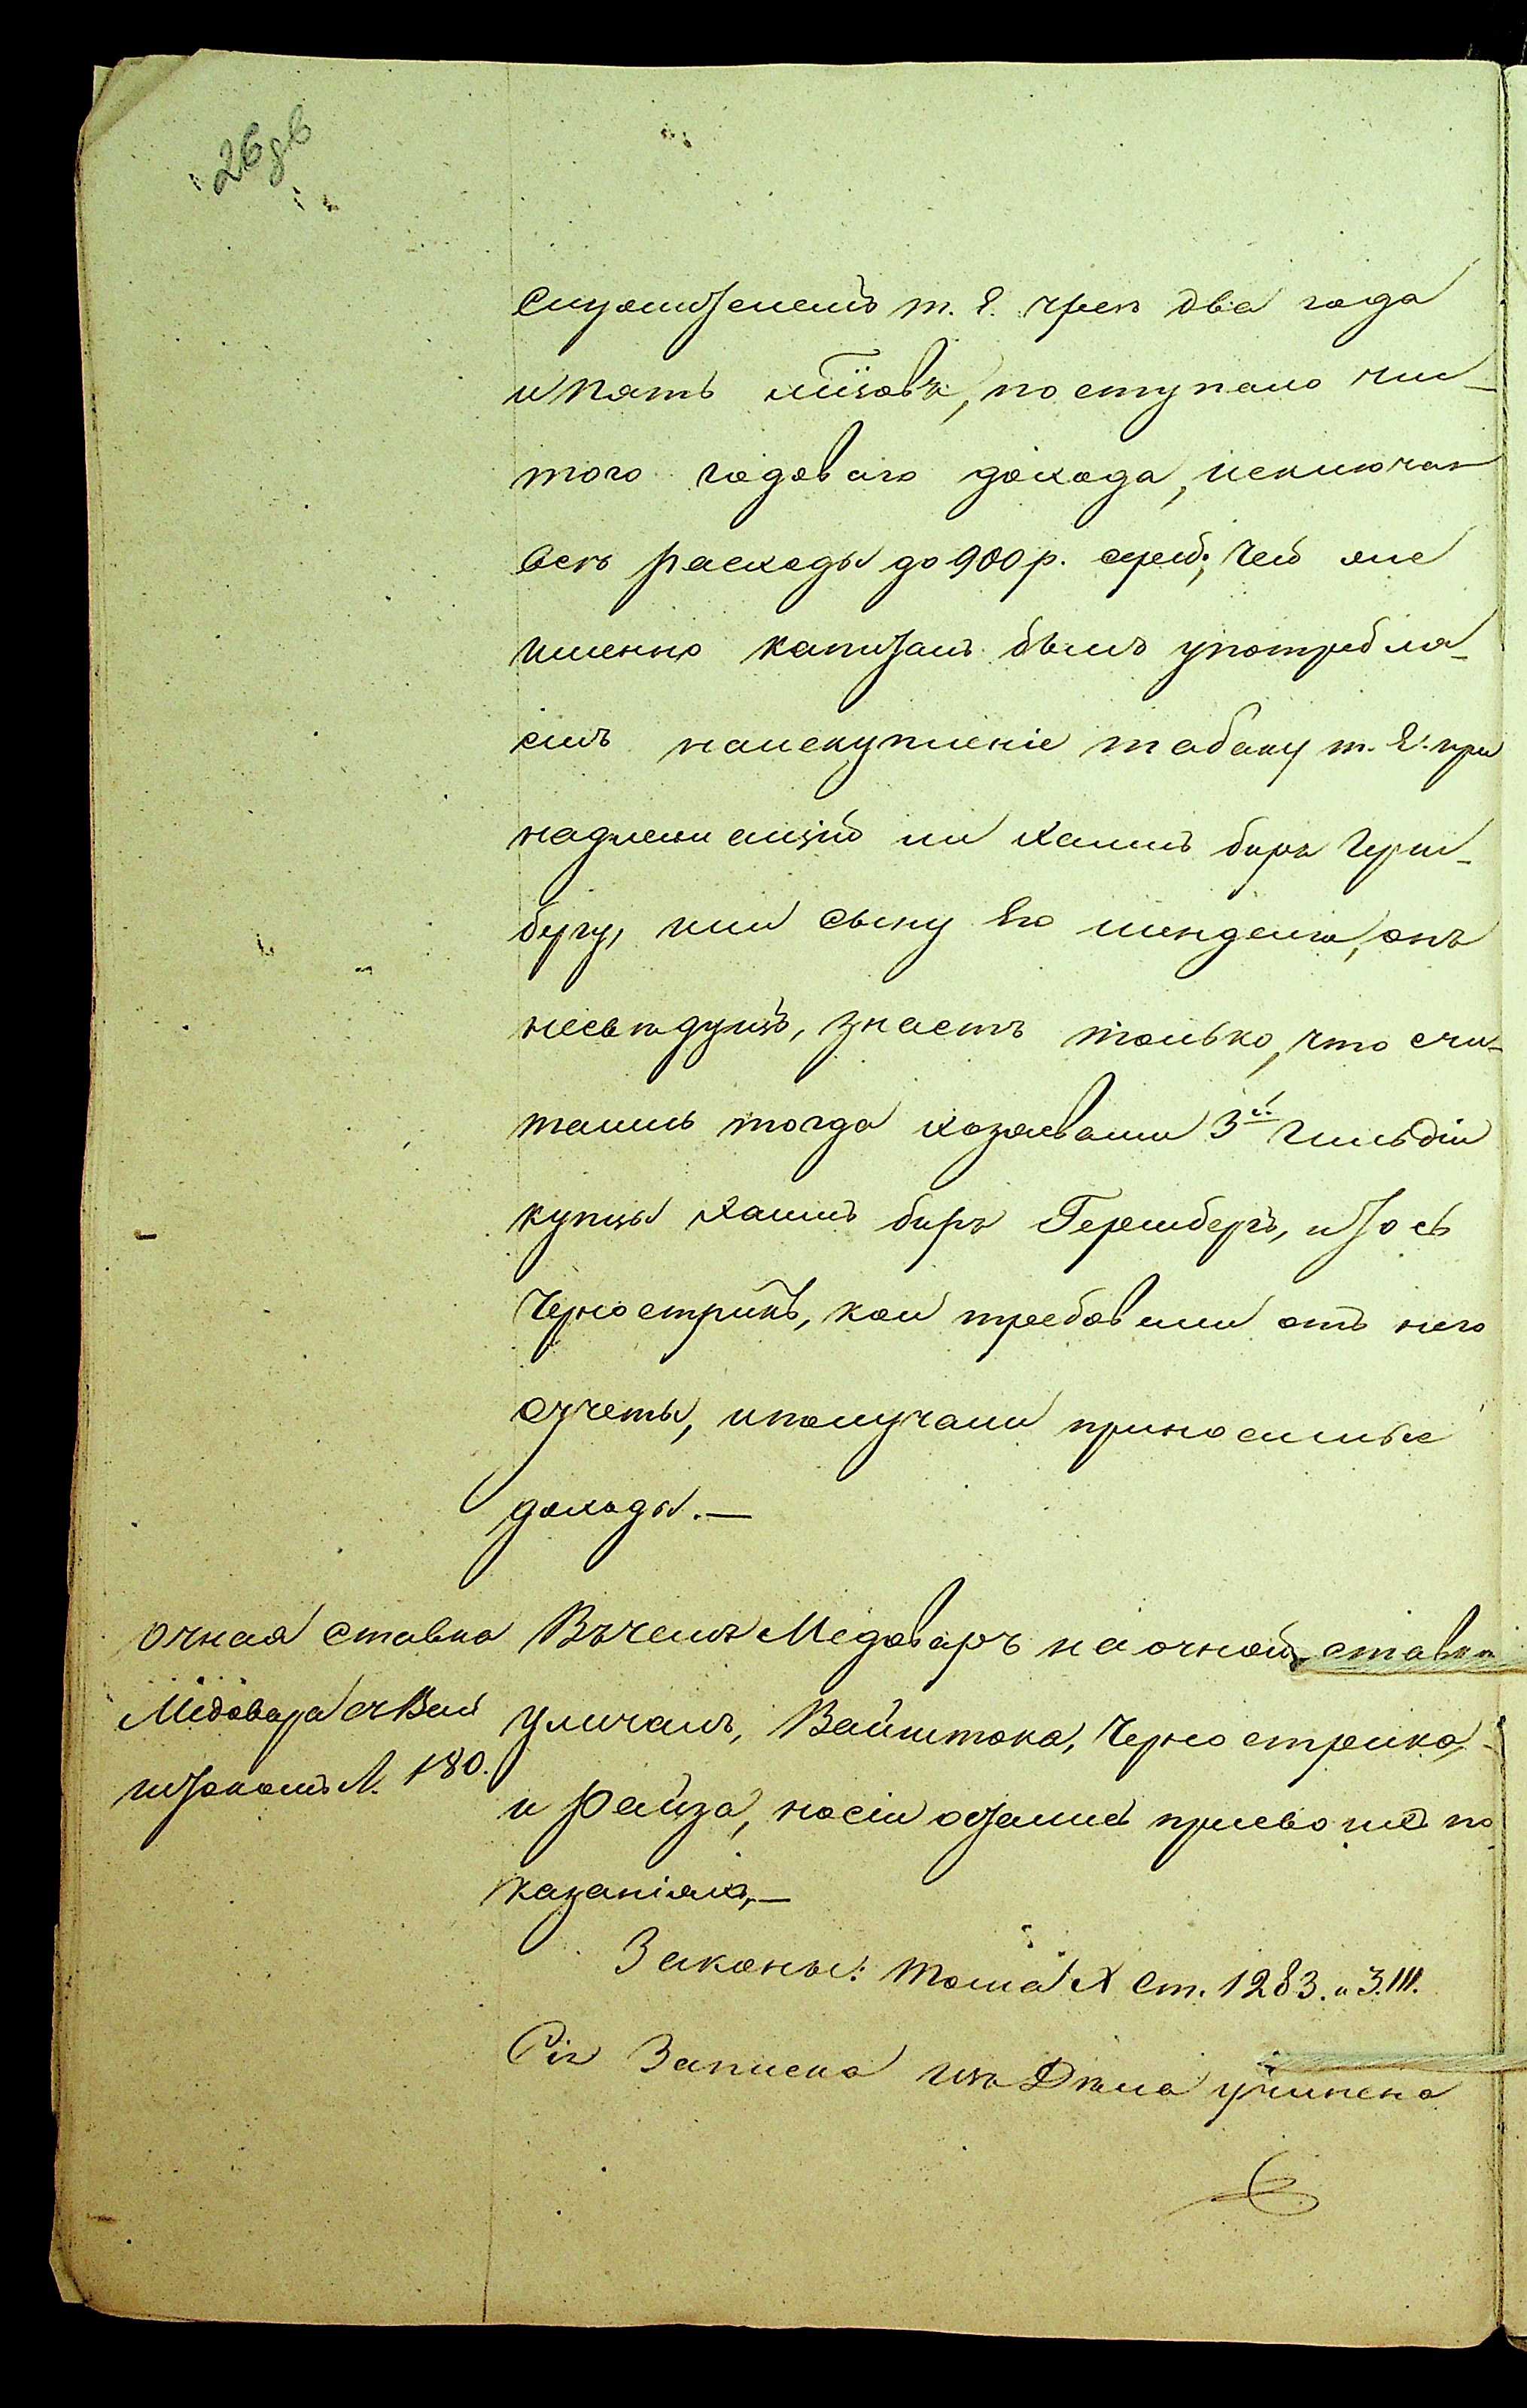 26 об
служителемъ т. е. чрезъ два года
и пять мѣсяцовъ, поступало чис-
того годоваго дохода, исключая
всѣ расходы до 900 р. сереб; чей же
именно капиталъ былъ употребля-
емъ на искупленіе табаку т. е. при
надлежащій ли Хаимъ беръ Герш-
бергу, или сыну его Менделю, онъ
несвѣдущъ, знаетъ только, что счи-
тались тогда хозяевами 3й гильдіи
купцы Хаимъ беръ Гершбергъ, и Іось
Чернострикъ, кои требовали отъ него
отчеты, и получали приносимые
доходы.—
очная ставка
Медовара съ Вай
штокомъ Л. 180.
Бѣчелъ Медоваръ на очной ставкѣ
уличалъ, Вайштока, Черностреика,
и Райза, но сіи остались при своихъ по
казаніяхъ,—
Законы: тома X ст. 1283. и З. III.
Сія Записка изъ Дѣла учинена